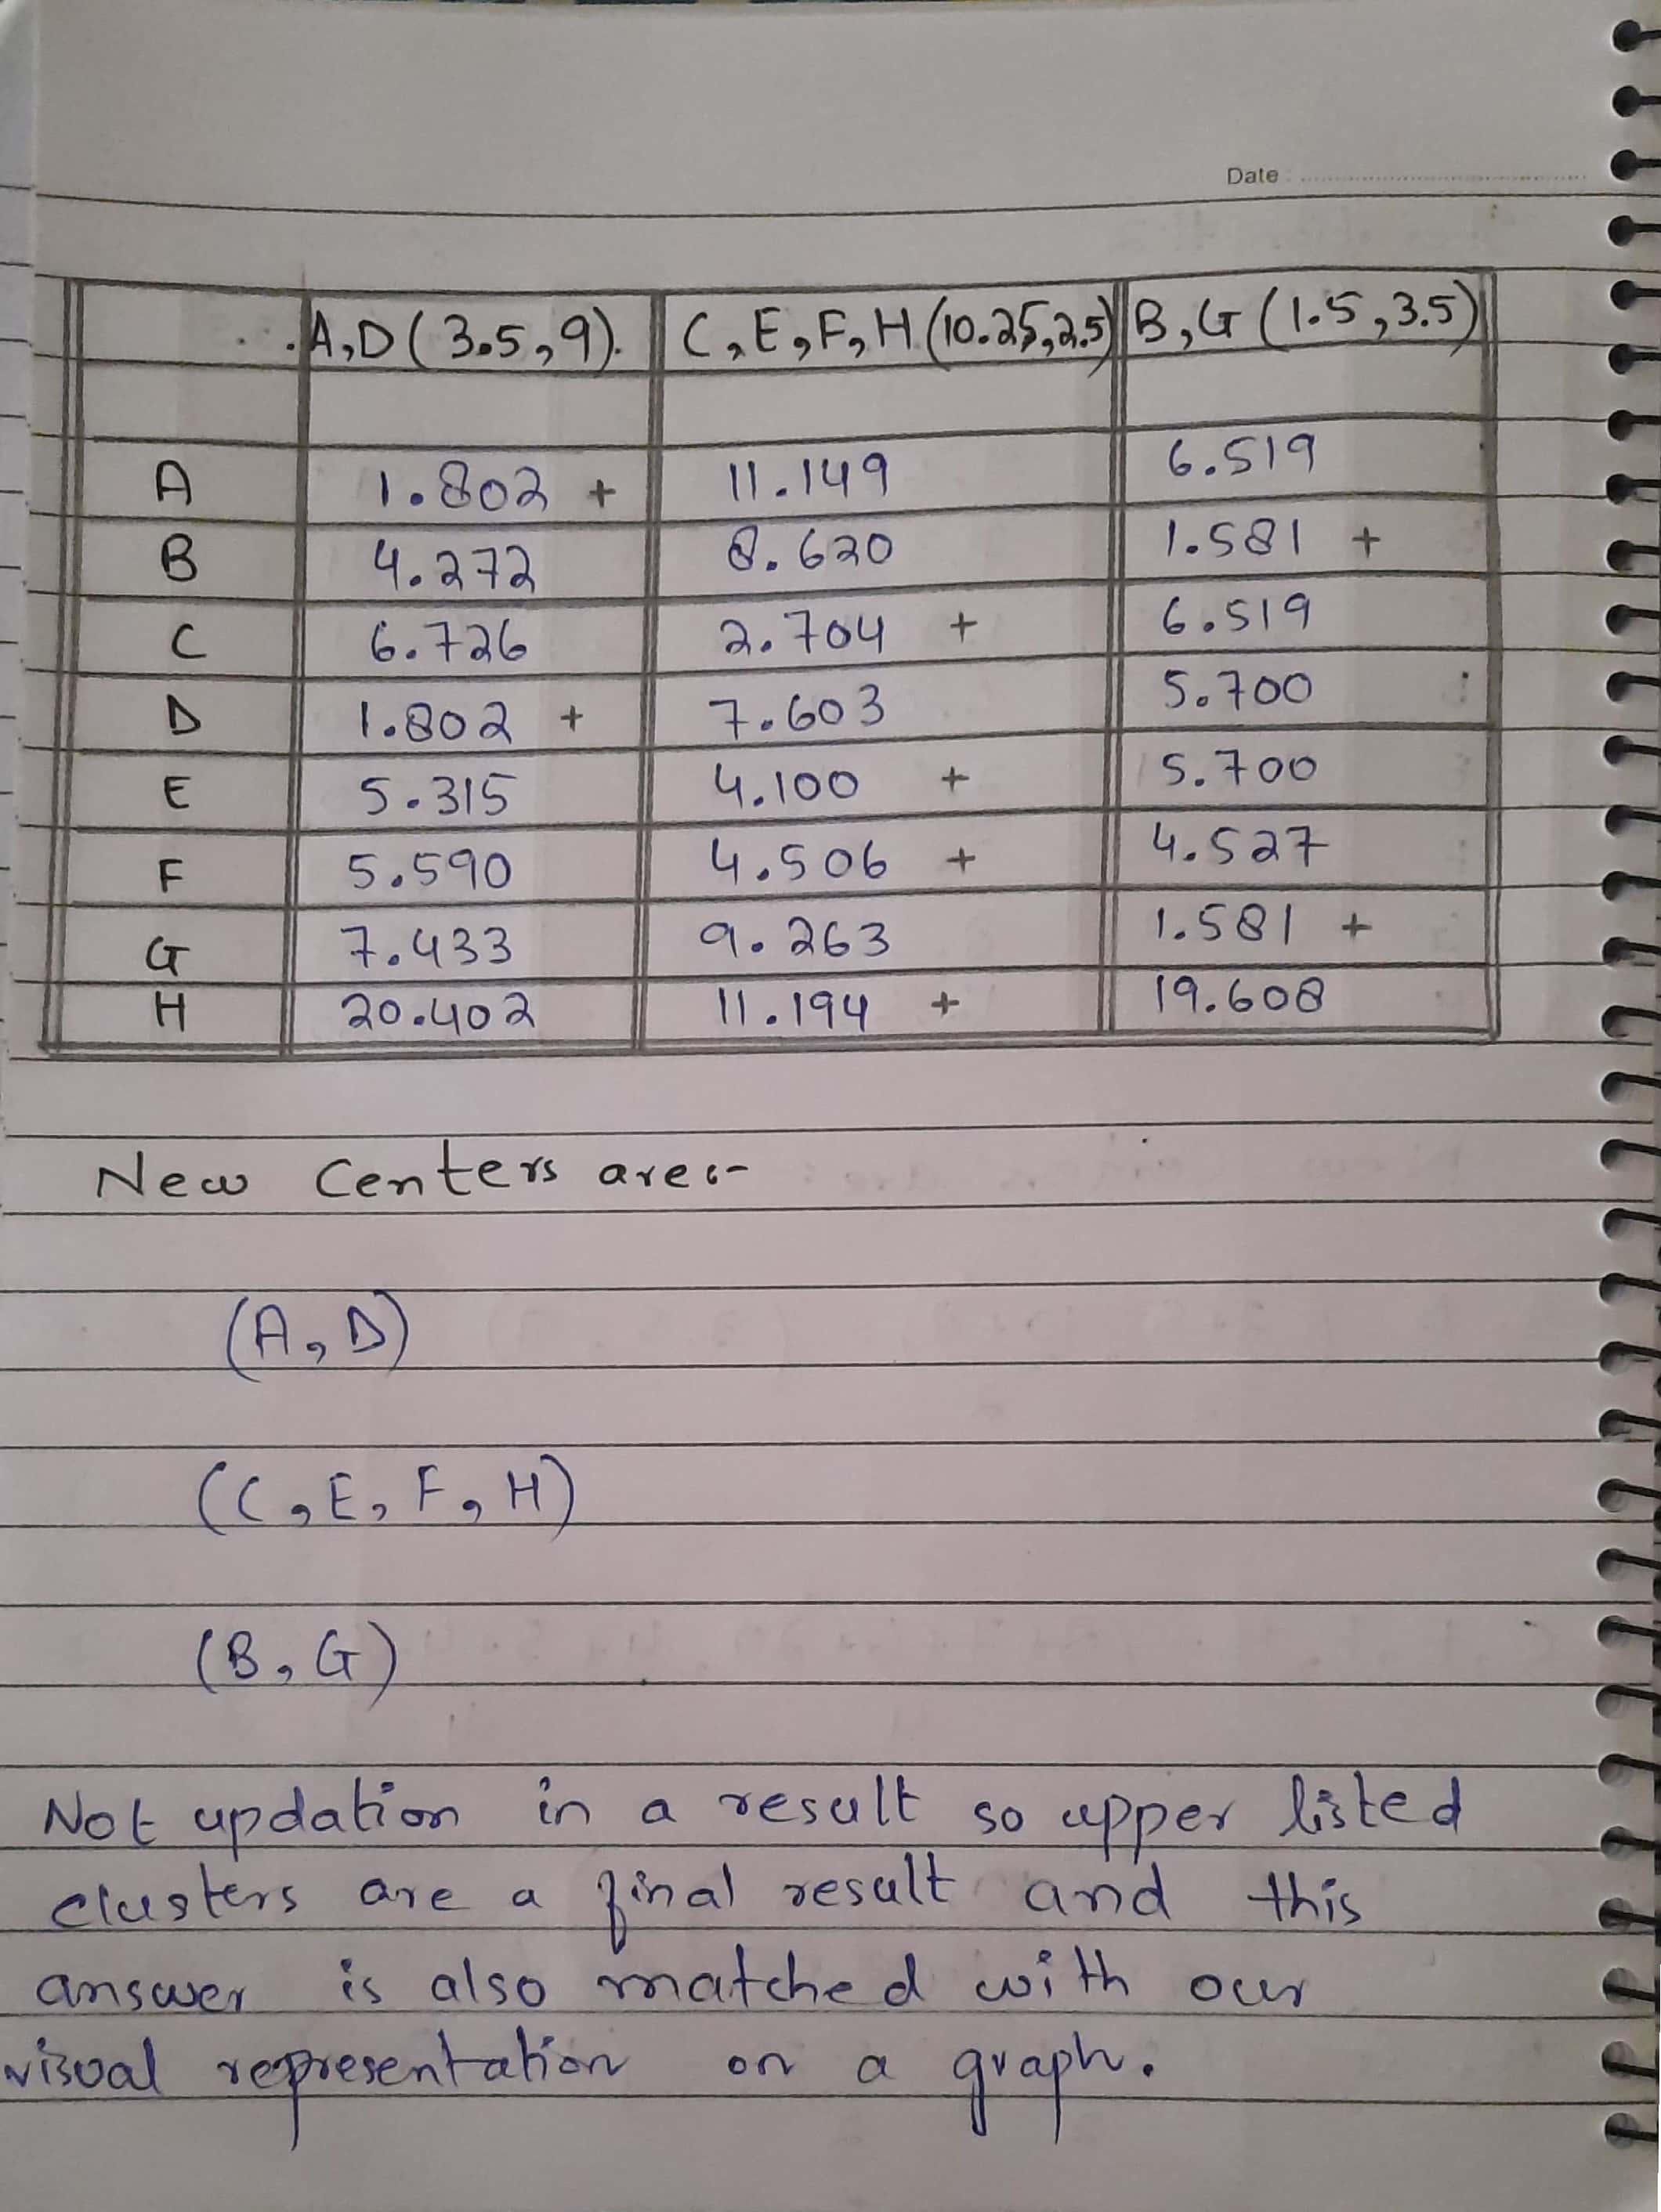 Date
A,D (3.5,9) C,E,F,H (10.25,2.5) B,G (1.5,3.5)
A 1.802 + 11.149 6.519
B 4.272 8.620 1.581 +
C 6.726 2.704 + 6.519
D 1.802 + 7.603 5.700
E 5.315 4.100 + 5.700
F 5.590 4.506 + 4.527
G 7.433 9.263 1.581 +
H 20.402 11.194 + 19.608
New Centers are:-
(A,D)
(C,E,F,H)
(B,G)
Not updation in a result so upper listed
clusters are a final result and this
answer is also matched with our
visual representation on a graph.